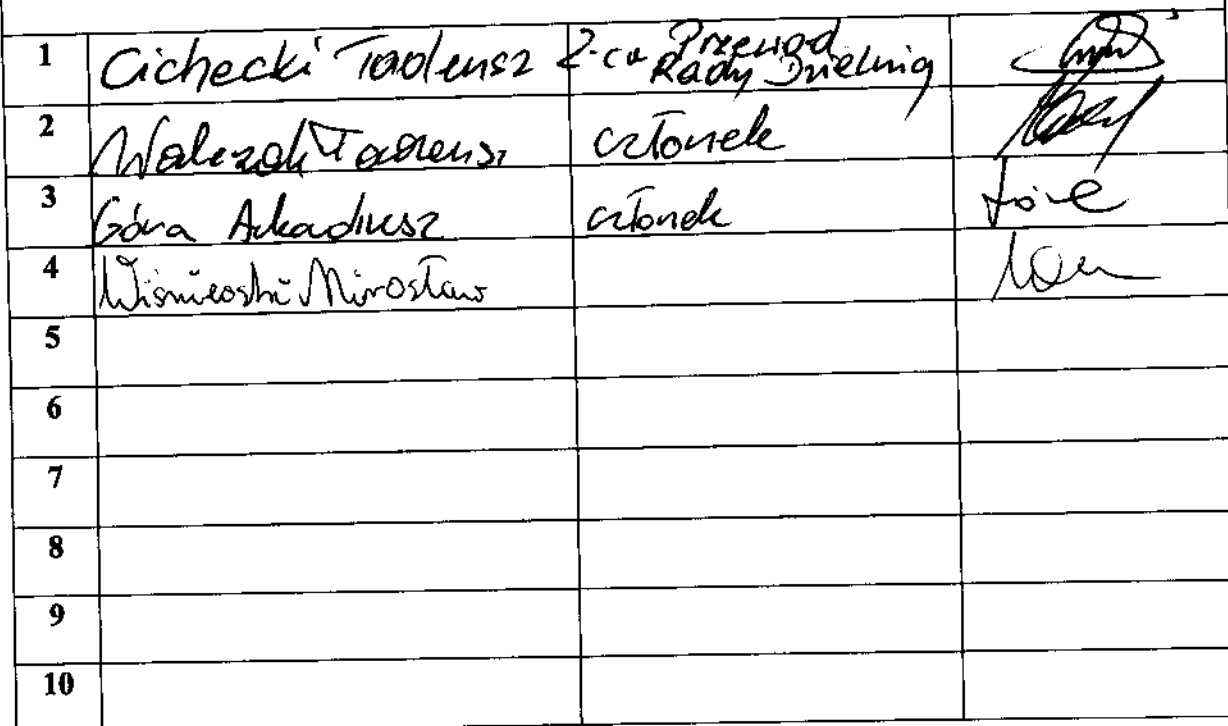 1 Cichecki Tadeusz Z-ca Przewod. Rady Dzielnicy
2 Walczak Tadeusz członek
3 Góra Arkadiusz członek
4 Wiśniewski Mirosław
5
6
7
8
9
10